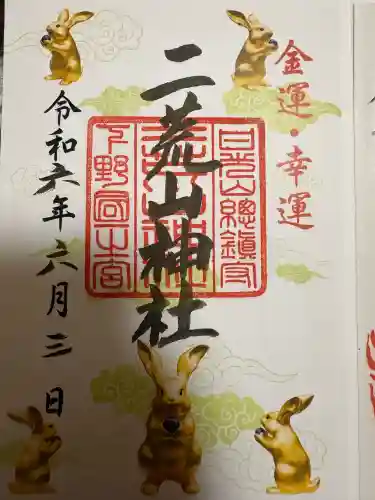 金運・幸運
二荒山神社
日光山總鎮守
下野國一之宮
令和六年六月三日